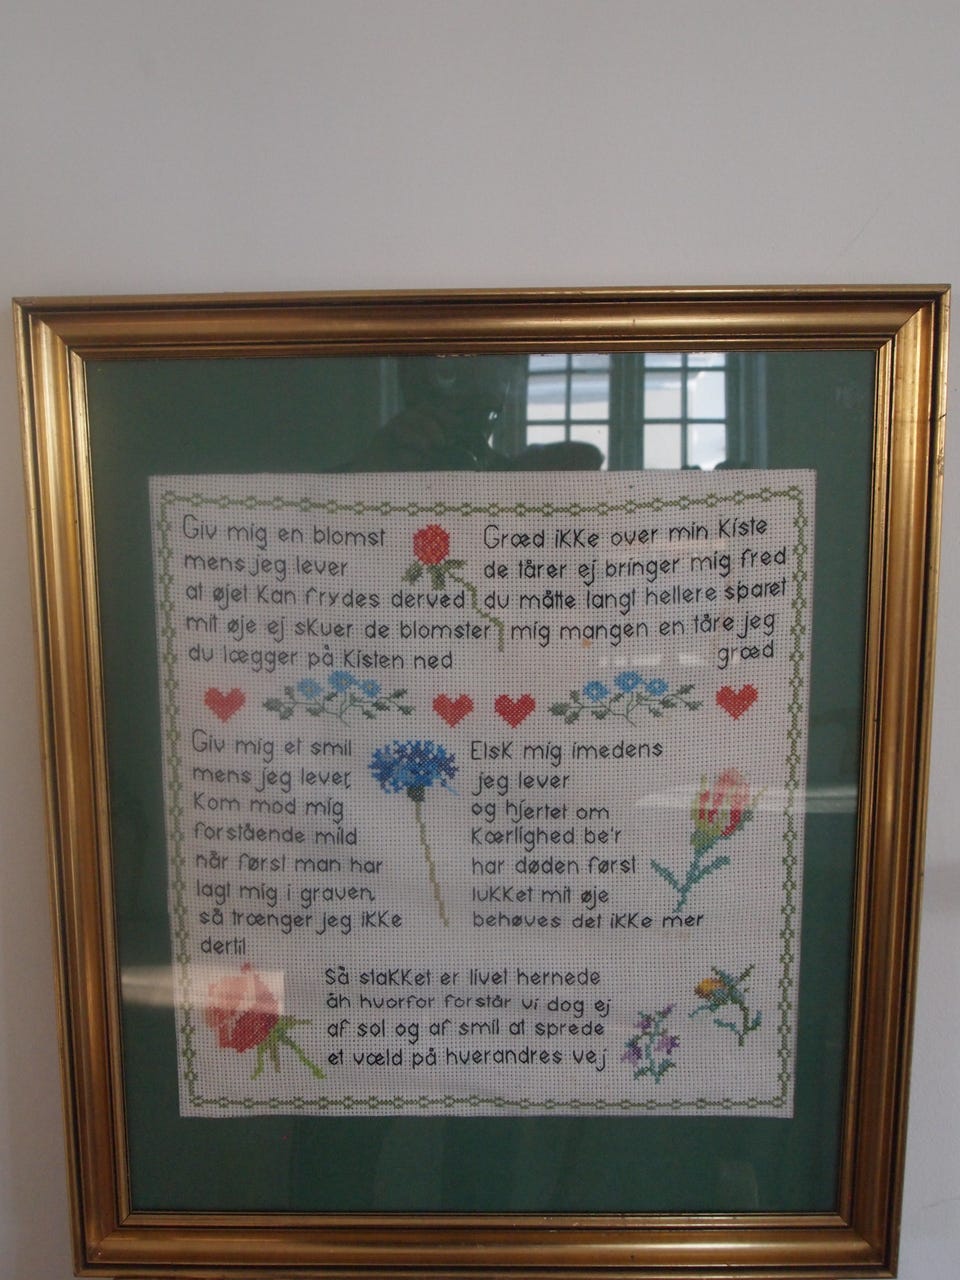 Giv mig en blomst
mens jeg lever
at øjet kan frydes derved
mit øje ej skuer de blomster
du lægger på kisten ned
Græd ikke over min kiste
de tårer ej bringer mig fred
du måtte langt hellere sparet
mig mangen en tåre jeg
græd
Giv mig et smil
mens jeg lever,
kom mod mig
forstående mild
når først man har
lagt mig i graven,
så trænger jeg ikke
dertil
Elsk mig imedens
jeg lever
og hjertet om
kærlighed be'r
har døden først
lukket mit øje
behøves det ikke mer
Så stakket er livet hernede
åh hvorfor forstår vi dog ej
af sol og af smil at sprede
et væld på hverandres vej